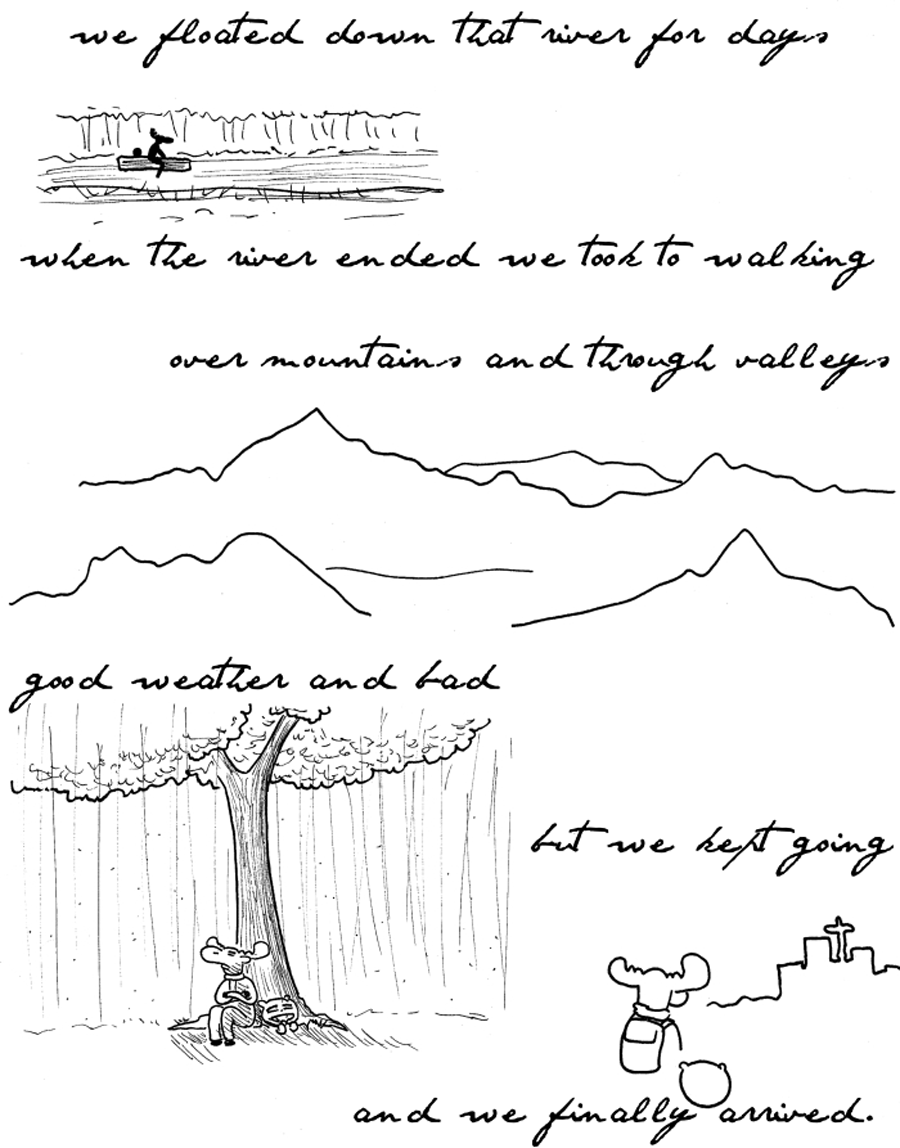 we floated down that river for days
when the river ended we took to walking
over mountains and through valleys
good weather and bad
but we kept going
and we finally arrived.